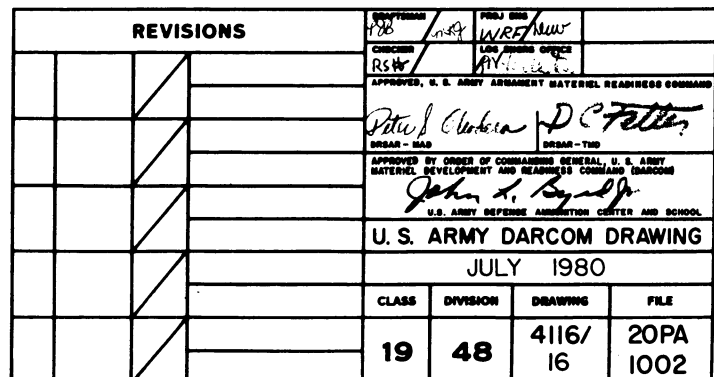 REVISIONS
DRAFTSMAN PROJ ENG
WRF
CHECKER LOG ENGRG OFFICE
APPROVED, U. S. ARMY ARMAMENT MATERIEL READINESS COMMAND
D C Fetter
DRSAR - MAD DRSAR - TMD
APPROVED BY ORDER OF COMMANDING GENERAL, U. S. ARMY
MATERIEL DEVELOPMENT AND READINESS COMMAND (DARCOM)
John L. Byrd Jr
U.S. ARMY DEFENSE AMMUNITION CENTER AND SCHOOL
U. S. ARMY DARCOM DRAWING
JULY 1980
CLASS DIVISION DRAWING FILE
19 48 4116/ 20PA
16 1002